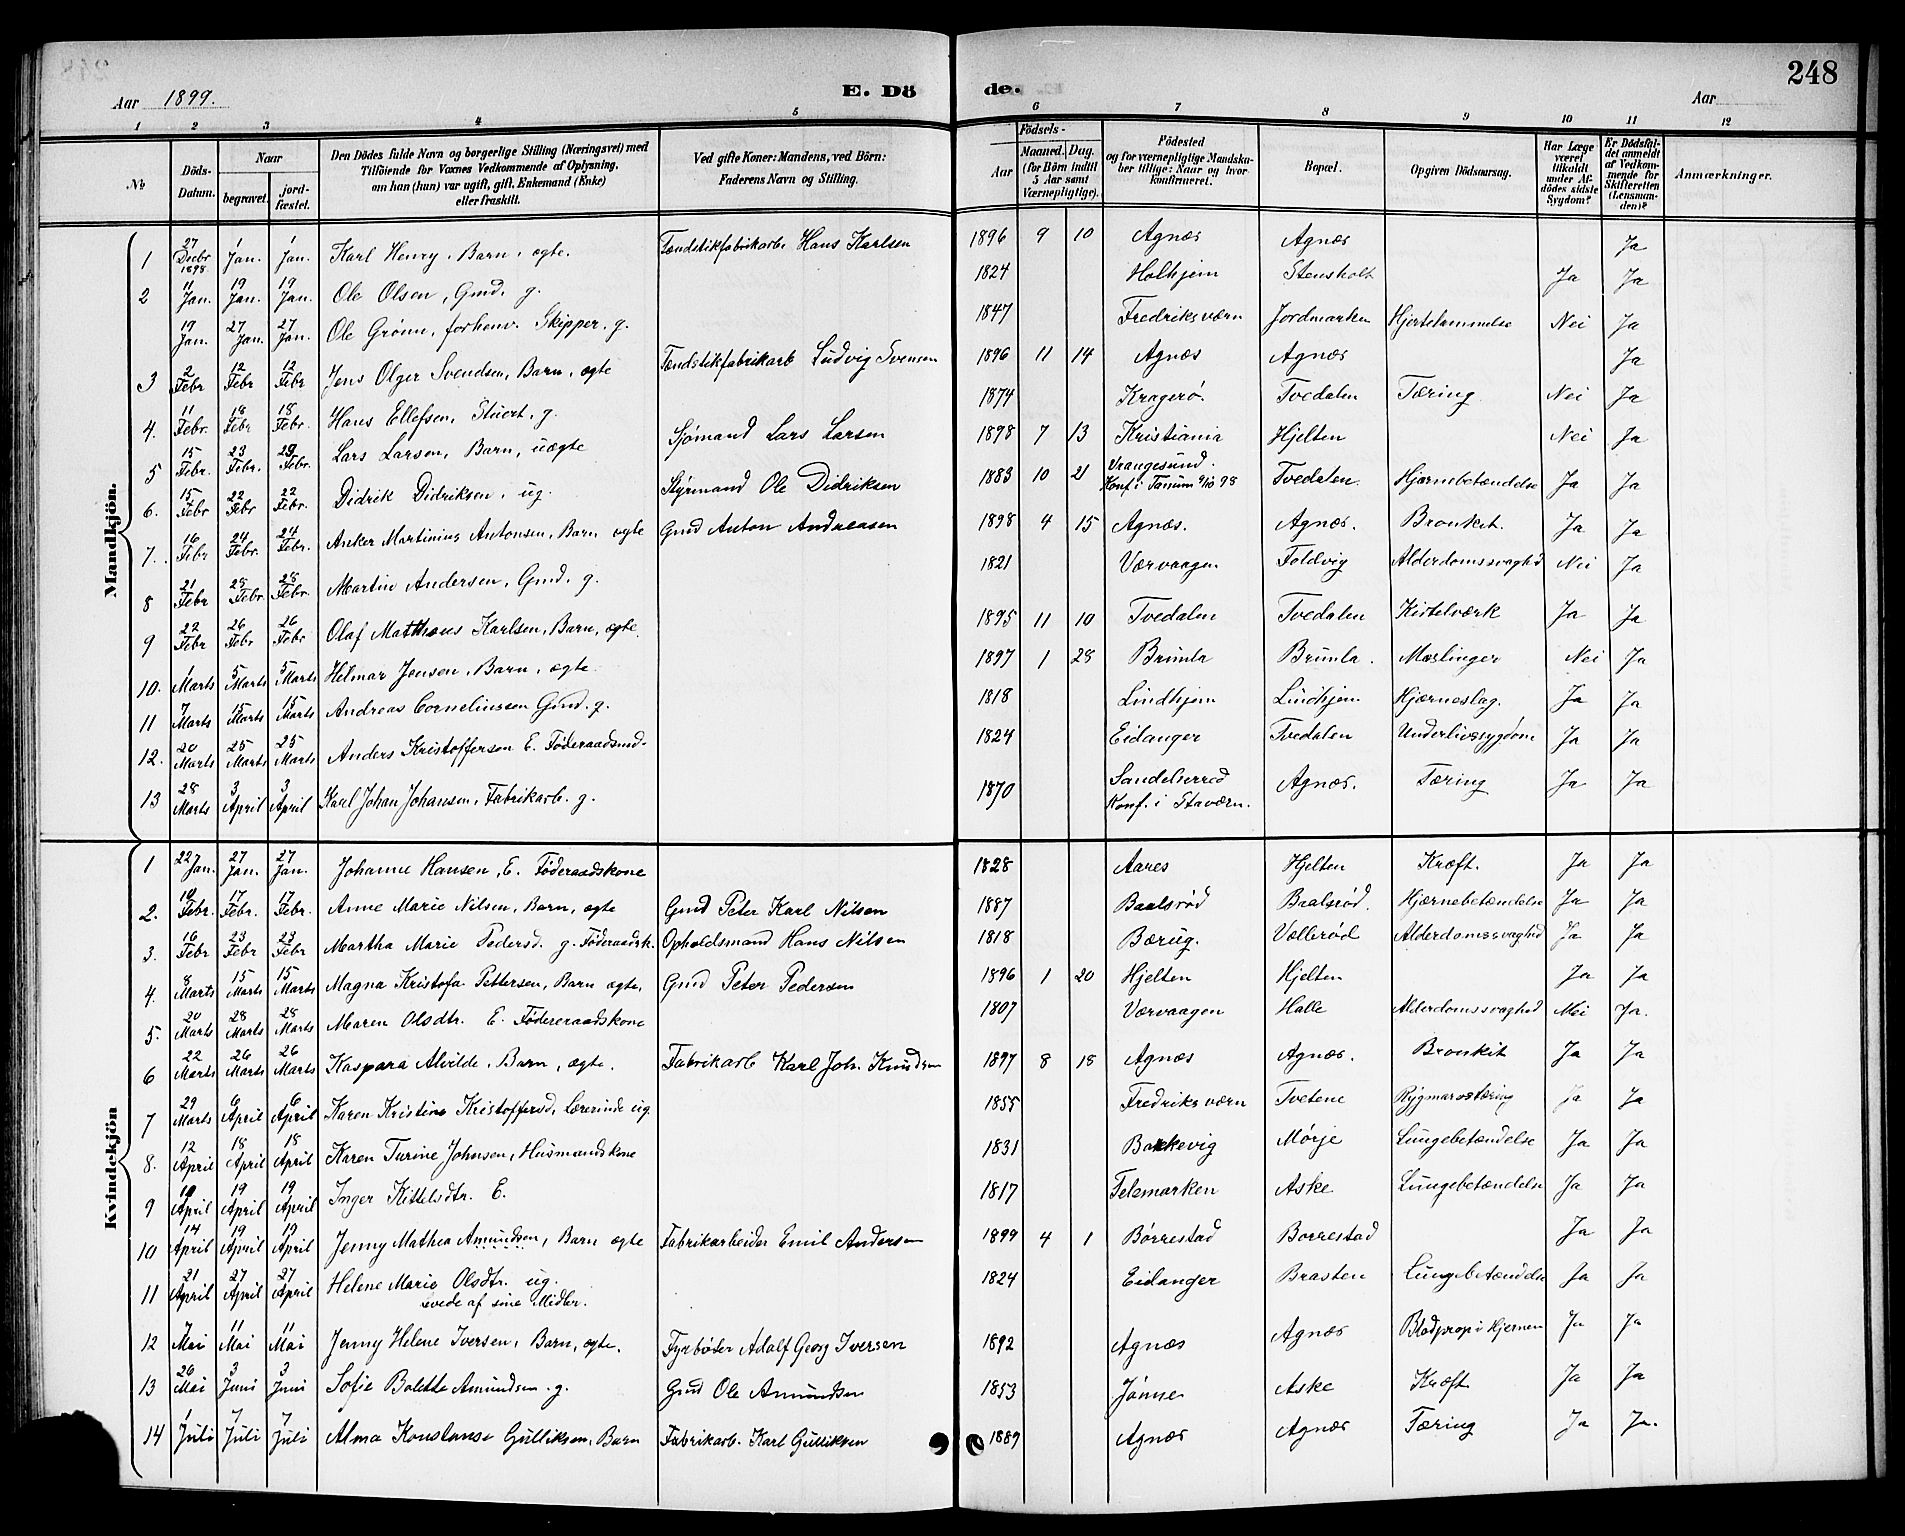 248
Aar 1899.
E. Dö
de.
Aar
1 2 3 4 5 6 7 8 9 10 11 12
No
Döds-Datum.
Naar
begravet.
jord-fæstet.
Den Dödes fulde Navn og borgerlige Stilling (Næringsvei) med
Tilföiende for Voxnes Vedkommende af Oplysning,
om han (hun) var ugift, gift, Enkemand (Enke)
eller fraskilt.
Ved gifte Koner: Mandens, ved Börn:
Faderens Navn og Stilling.
Födsels-
Aar
Maaned. Dag.
(for Börn indtil
5 Aar samt
Værnepligtige).
Födested
og for værnepligtige Mandska-
ber tillige: Naar og hvor
konfirmeret.
Bopæl.
Opgiven Dödsaarsag.
Har Læge
været
tilkaldt
under Af-
dödes sidste
Sygdom?
Er Dödsfal-
det anmeldt
af Vedkom-
mende for
Skifteretten
(Lensman-
den)?
Anmærkninger.
Mandkjön.
1 27 Decbr 1898 1 Jan. 1 Jan. Karl Henry, Barn, ægte. Tændstikfabrikarb. Hans Karlsen 1896 9 10 Agnæs Agnæs Ja
2 11 Jan. 19 Jan. 19 Jan. Ole Olsen, Gmd. g. 1824 Holhjem Stensholt Ja Ja
19 Jan. 27 Jan. 27 Jan. Ole Grønn, forhenv. Skipper, g. 1847 Fredriksværn Jordmarken Hjertelammelse Nei Ja
3 2 Febr 12 Febr 12 Febr Jens Olger Svendsen, Barn, ægte Tændstikfabrikarb Ludvig Svensen 1896 11 14 Agnæs Agnæs Ja
4. 11 Febr. 18 Febr 18 Febr. Hans Ellefsen, Stuert, g. 1874 Kragerø. Tvedalen Tæring Nei Ja
5 15 Febr. 23 Febr. 23 Febr. Lars Larsen, Barn, uægte Sjømand Lars Larsen 1898 7 13 Kristiania Hjelten Nei Ja
6. 15 Febr 22 Febr 22 Febr. Didrik Didriksen, ug. Styrmand Ole Didriksen 1883 10 21 Vrangesund. Konf. i Tanum 9/10 98 Tvedalen Hjærnebetændelse Ja Ja
7. 16 Febr 24 Febr. 24 Febr. Anker Martinius Antonsen, Barn ægte Gmd Anton Andreasen 1898 4 15 Agnæs. Agnæs. Bronkit. Ja Ja
8 21 Febr 28 Febr. 28 Febr. Martin Andersen, Gmd. g. 1821 Værvaagen Foldvig Alderdomssvaghed Nei Ja
9 22 Febr 26 Febr 26 Febr Olaf Matthæus Karlsen, Barn, ægte. 1895 11 10 Tvedalen Tvedalen Kirtelværk Ja Ja
10. 1 Marts 5 Marts 5 Marts Helmar Jensen, Barn, ægte. 1897 1 28 Brunla Brunla. Mæslinger Nei Ja
11 7 Marts 15 Marts 15 Marts Andreas Corneliussen Gmd. g. 1818 Lindhjem Lindhjem Hjærneslag. Ja Ja
12. 20 Marts 25 Marts 25 Marts Anders Kristoffersen E. Føderaadsmd. 1824 Eidanger Tvedalen Underlivssygdom Ja Ja
13 28 Marts 3 April 3 April Karl Johan Johansen, Fabrikarb. g. 1870 Sandeherred Konf. i Staværn. Agnæs. Tæring Ja Ja
Kvindekjön
1 22 Jan. 27 Jan. 27 Jan. Johanne Hansen, E. Føderaadskone 1828 Aares Hjelten Kræft. Ja Ja
2. Febr 17 Febr. 17 Febr. Anne Marie Nilsen, Barn, ægte Gmd Peter Karl Nilsen 1887 Baalsrød Baalsrød. Hjærnebetændelse Ja Ja
3. 16 Febr 23 Febr 23 Febr Martha Marie Pedersd. g. Føderaadsk. Opholdsmand Hans Nilsen 1818 Bærug. Vællerød Alderdomssvaghed Ja Ja
4. 8 Marts 15 Marts 15 Marts Magna Kristofa Pettersen, Barn ægte, Gmd Peter Pedersen 1896 1 20 Hjelten Hjelten Ja Ja
5. 20 Marts 28 Marts 28 Marts Maren Olsdtr. E. Fødereraadskone 1807 Værvaagen Halle Alderdomssvaghed Nei Ja.
6 22 Marts 26 Marts 26 Marts Kaspara Alvilde, Barn, ægte. Fabrikarb Karl Joh. Knudsen 1897 8 18 Agnæs Agnæs. Bronkit Ja Ja
7 29 Marts 6 April 6 April Karen Kristine Kristoffersd, Lærerinde ug. 1855 Fredriksværn Tvetene Rygmarvstæring Ja Ja
8. 12 April 18 April 18 April Karen Turine Johnsen, Husmandskone 1831 Bakkevig Mørje Lungebetændelse Ja Ja
9 April 19 April 19 April Inger Kittelsdtr. E. 1817 Telemarken Aske Lungebetændelse Ja Ja
10 14 April 19 April 19 April Jenny Mathea Amundsen, Barn ægte Fabrikarbeider Emil Andersen 1899 4 1 Børrestad Borrestad Ja Ja
11 21 April 27 April 27 April Helene Marie Olsdtr. ug.
levede af sine Midler. 1824 Eidanger Brasten Lungebetændelse Ja Ja
12 7 Mai 11 Mai 11 Mai Jenny Helene Iversen, Barn, ægte. Fyrbøder Adolf Georg Iversen 1892 Agnæs Agnæs Blodprop i Hjernen Ja Ja
13 26 Mai 3 Juni 3 Juni Sofie Bolette Amundsen. g. Gmd Ole Amundsen 1853 Jønne Aske Kræft Ja Ja
14 1 Juli 7 Juli 7 Juli Alma Konstanse Gulliksen, Barn Fabrikarb. Karl Gulliksen 1889 Agnæs Agnæs Tæring Ja Ja.